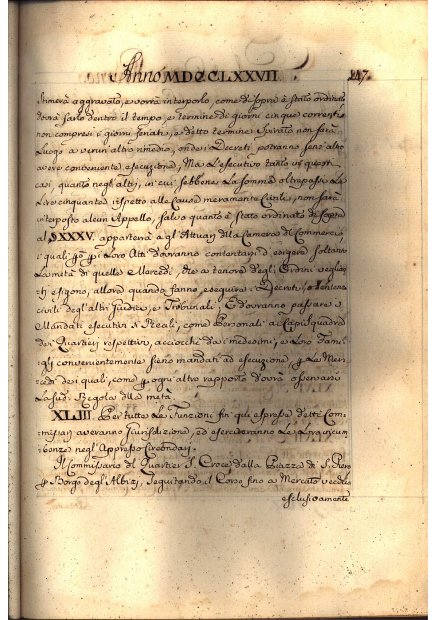 Anno MDCCLXXVII. 247.
stimerà aggravato, e vorrà interporlo, come di sopra è stato ordinato
dovrà farlo dentro il tempo, e termine di giorni cinque correnti
non compresi i giorni feriati, e detto termine spirato non sarà
luogo a verun altro rimedio, onde i Decreti potranno senz'altro
avere conveniente esecuzione; Ma l'esecutivo tanto in questi
casi, quanto negl'altri, in cui sebbene la somma oltrepassi le
Lire cinquanta rispetto alle Cause meramente Civili, non sarà
interposto alcun Appello, salvo quanto è stato ordinato di sopra
al § XXXV. apparterrà agl'Attuari della Camera di Commercio
i quali p. p. Loro Atti dovranno contentarsi d'esigere soltanto
la metà di quelle Mercedi, che a tenore degl'Ordini veglian
ti esigono, allora quando fanno eseguire i Decreti, o Sentenze
civili degl'altri Giudici, e Tribunali. E dovranno passare i
Mandati esecutivi sì Reali, come Personali ai Capi Squadra
dei Quartieri respettivi, acciocchè da i medesimi, e Loro Fami-
gli convenientemente sieno mandati ad esecuzione, p. le Mer-
cedi dei quali, come p. ogni altro rapporto dovrà osservarsi
la sud.a Regola della metà.
XLIII. Per tutte le Funzioni fin qui espresse detti Com-
missari averanno giurisdizione, ed eserciteranno le Loro incum-
benze negl'Appresso Circondarj.
Il Commissario del Quartier S. Croce dalla Piazza di S. Piero
p. Borgo degl'Albizj, seguitando il Corso fino a Mercato vecchio
esclusivamente